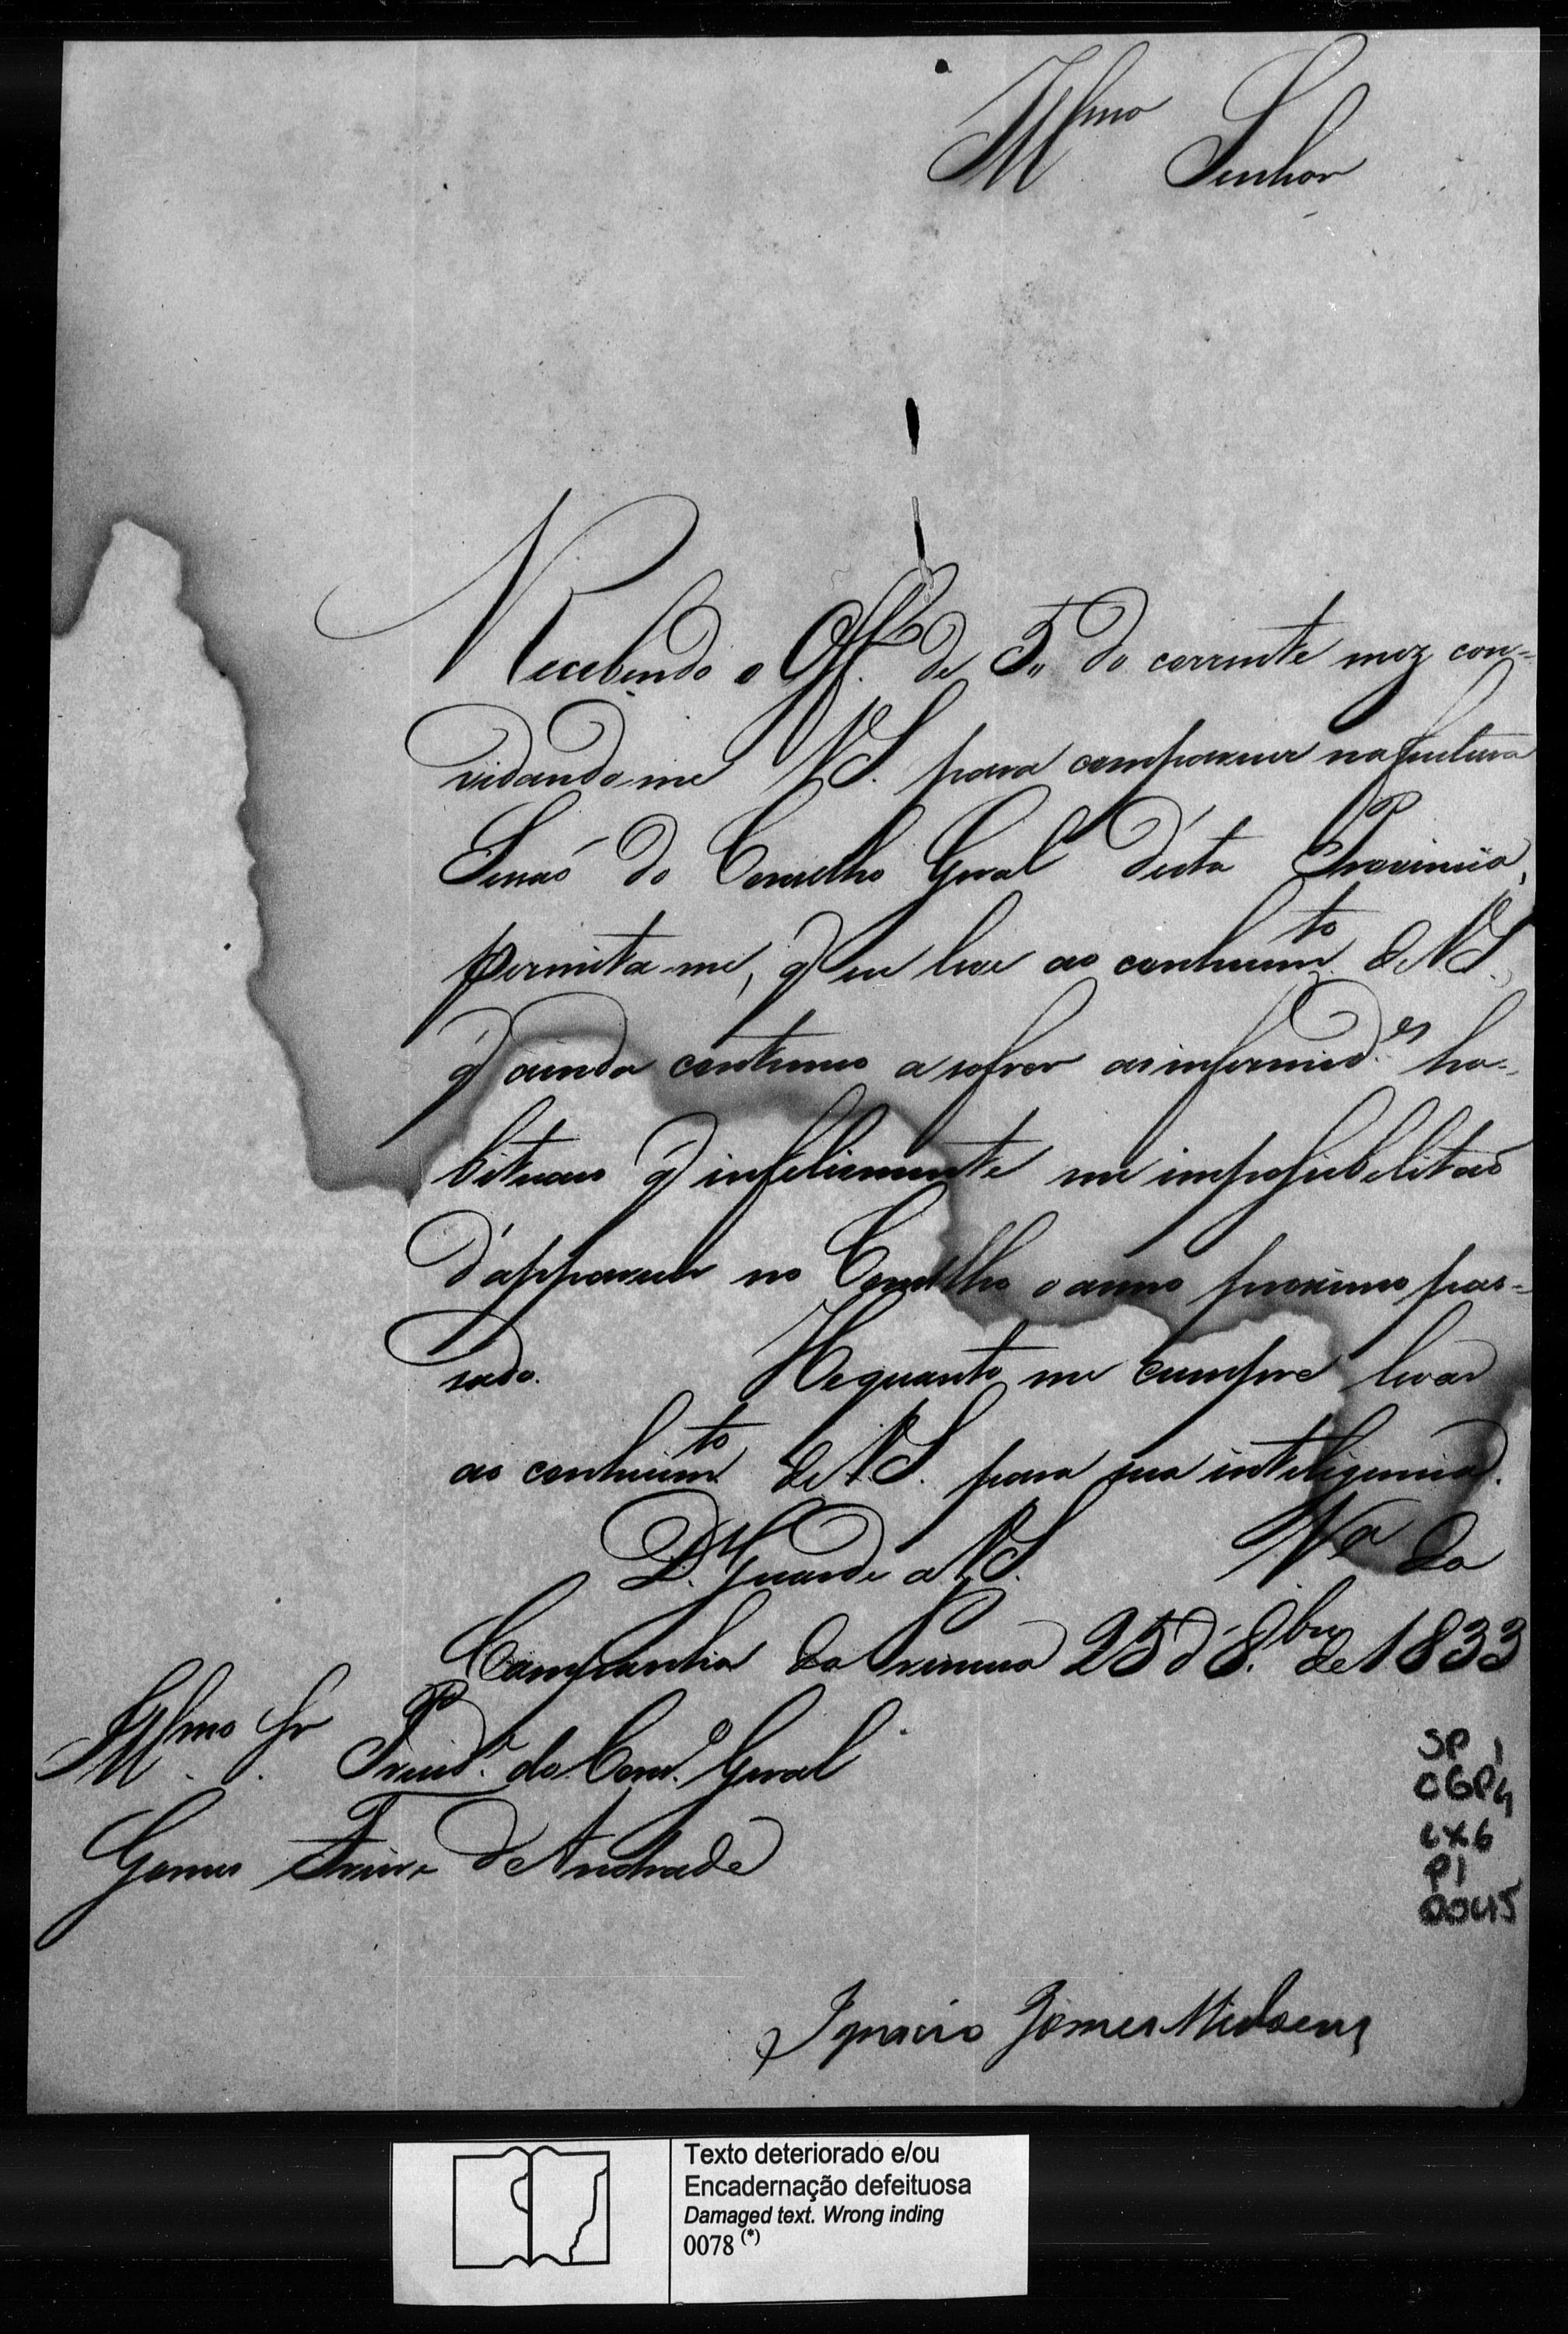 Illmo Senhor
Recebendo o Off.º de 5,, do corrente mez con-
vidando-me V.S. para comparecer na futura
Sessaõ do Conselho Geral desta Provincia,
permita-me, q̃ eu leve ao conhecim.to de V.S.
q̃ ainda continuo a sofrer as infermid.es ha-
bituaes q̃ infelismente me impossibelitaõ
d'apparecer no Conselho o anno proximo pas-
sado. He quanto me cumpre levar
ao conhecim.to de V.S. para sua inteligencia.
D.s Guarde a V.S. V.a da
Campanha da Princeza 25 d'8.bro de 1833
Illmo Sr Presid.e do Cons.o Geral
Gomes Freire de Andrade
Ignacio Gomes Midoens
SP 1
CGP4
CX6
P1
0045
Texto deteriorado e/ou
Encadernação defeituosa
Damaged text. Wrong inding
0078 (*)